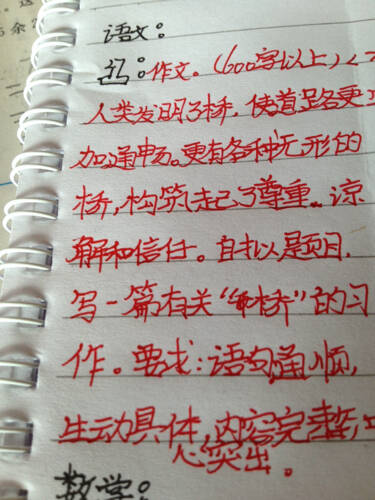 语文:
①:作文。(600字以上)
人类发明了桥,使道路更
加通畅。更有各种无形的
桥,构筑起了尊重、谅
解和信任。自拟题目,
写一篇有关“桥”的习
作。要求:语句通顺,
生动具体,内容完整,中
心突出。
数学: